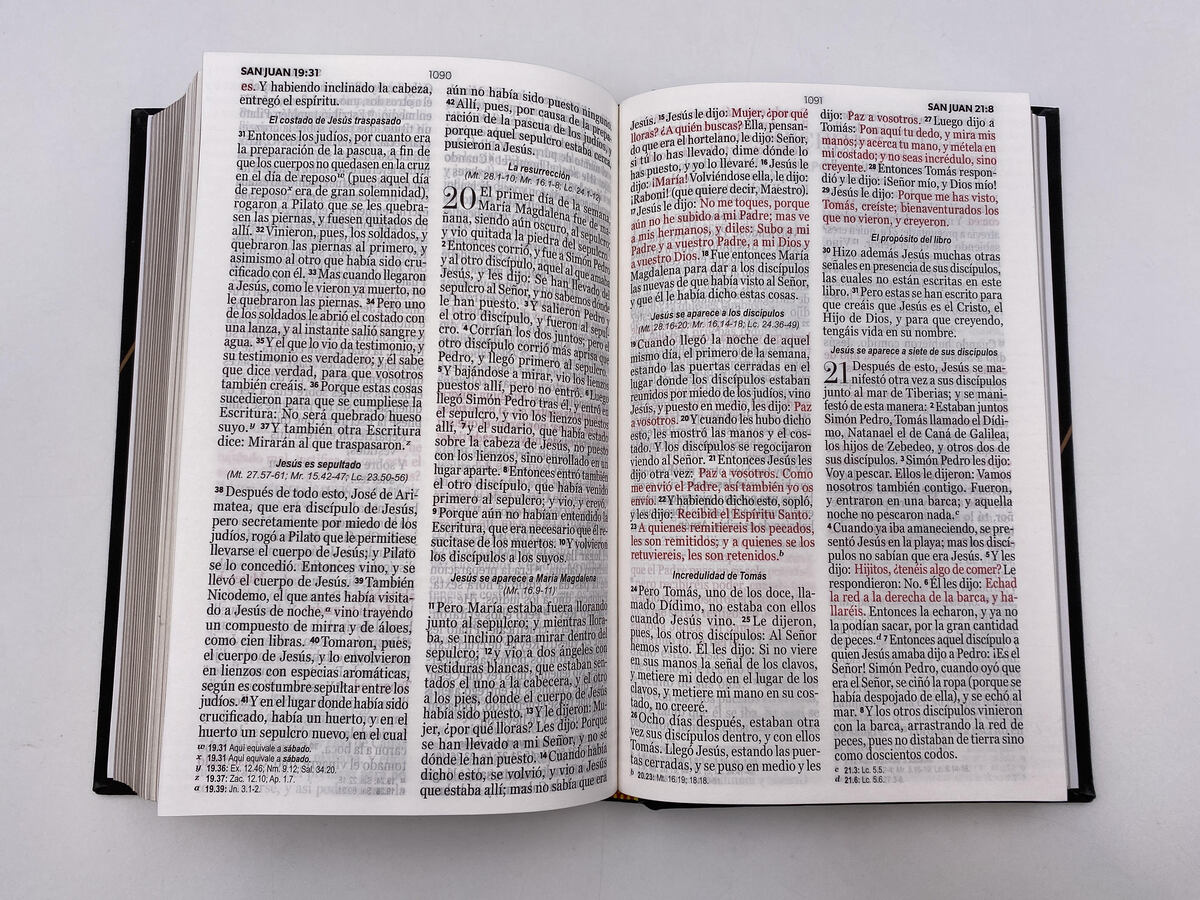 SAN JUAN 19:31
1090
es. Y habiendo inclinado la cabeza,
entregó el espíritu.
El costado de Jesús traspasado
31 Entonces los judíos, por cuanto era
la preparación de la pascua, a fin de
que los cuerpos no quedasen en la cruz
en el día de reposo w (pues aquel día
de reposo x era de gran solemnidad),
rogaron a Pilato que se les quebra-
sen las piernas, y fuesen quitados de
allí. 32 Vinieron, pues, los soldados, y
quebraron las piernas al primero, y
asimismo al otro que había sido cru-
cificado con él. 33 Mas cuando llegaron
a Jesús, como le vieron ya muerto, no
le quebraron las piernas. 34 Pero uno
de los soldados le abrió el costado con
una lanza, y al instante salió sangre y
agua. 35 Y el que lo vio da testimonio, y
su testimonio es verdadero; y él sabe
que dice verdad, para que vosotros
también creáis. 36 Porque estas cosas
sucedieron para que se cumpliese la
Escritura: No será quebrado hueso
suyo. y 37 Y también otra Escritura
dice: Mirarán al que traspasaron. z
Jesús es sepultado
(Mt. 27.57-61; Mr. 15.42-47; Lc. 23.50-56)
38 Después de todo esto, José de Ari-
matea, que era discípulo de Jesús,
pero secretamente por miedo de los
judíos, rogó a Pilato que le permitiese
llevarse el cuerpo de Jesús; y Pilato
se lo concedió. Entonces vino, y se
llevó el cuerpo de Jesús. 39 También
Nicodemo, el que antes había visita-
do a Jesús de noche, a vino trayendo
un compuesto de mirra y de áloes,
como cien libras. 40 Tomaron, pues,
el cuerpo de Jesús, y lo envolvieron
en lienzos con especias aromáticas,
según es costumbre sepultar entre los
judíos. 41 Y en el lugar donde había sido
crucificado, había un huerto, y en el
huerto un sepulcro nuevo, en el cual
w 19.31 Aquí equivale a sábado.
x 19.31 Aquí equivale a sábado.
y 19.36: Ex. 12.46; Nm. 9.12; Sal. 34.20.
z 19.37: Zac. 12.10; Ap. 1.7.
a 19.39: Jn. 3.1-2.
aún no había sido puesto ninguno.
42 Allí, pues, por causa de la prepa-
ración de la pascua de los judíos, y
porque aquel sepulcro estaba cerca,
pusieron a Jesús.
La resurrección
(Mt. 28.1-10; Mr. 16.1-8; Lc. 24.1-12)
20 El primer día de la semana,
María Magdalena fue de ma-
ñana, siendo aún oscuro, al sepulcro;
y vio quitada la piedra del sepulcro.
2 Entonces corrió, y fue a Simón Pedro
y al otro discípulo, aquel al que amaba
Jesús, y les dijo: Se han llevado del
sepulcro al Señor, y no sabemos dónde
le han puesto. 3 Y salieron Pedro y
el otro discípulo, y fueron al sepul-
cro. 4 Corrían los dos juntos; pero el
otro discípulo corrió más aprisa que
Pedro, y llegó primero al sepulcro.
5 Y bajándose a mirar, vio los lienzos
puestos allí, pero no entró. 6 Luego
llegó Simón Pedro tras él, y entró en
el sepulcro, y vio los lienzos puestos
allí, 7 y el sudario, que había estado
sobre la cabeza de Jesús, no puesto
con los lienzos, sino enrollado en un
lugar aparte. 8 Entonces entró también
el otro discípulo, que había venido
primero al sepulcro; y vio, y creyó.
9 Porque aún no habían entendido la
Escritura, que era necesario que él re-
sucitase de los muertos. 10 Y volvieron
los discípulos a los suyos.
Jesús se aparece a María Magdalena
(Mr. 16.9-11)
11 Pero María estaba fuera llorando
junto al sepulcro; y mientras llora-
ba, se inclinó para mirar dentro del
sepulcro; 12 y vio a dos ángeles con
vestiduras blancas, que estaban sen-
tados el uno a la cabecera, y el otro
a los pies, donde el cuerpo de Jesús
había sido puesto. 13 Y le dijeron: Mu-
jer, ¿por qué lloras? Les dijo: Porque
se han llevado a mi Señor, y no sé
dónde le han puesto. 14 Cuando había
dicho esto, se volvió, y vio a Jesús
que estaba allí; mas no sabía que era
1091
SAN JUAN 21:8
Jesús. 15 Jesús le dijo: Mujer, ¿por qué
lloras? ¿A quién buscas? Ella, pensan-
do que era el hortelano, le dijo: Señor,
si tú lo has llevado, dime dónde lo
has puesto, y yo lo llevaré. 16 Jesús le
dijo: ¡María! Volviéndose ella, le dijo:
¡Raboni! (que quiere decir, Maestro).
17 Jesús le dijo: No me toques, porque
aún no he subido a mi Padre; mas ve
a mis hermanos, y diles: Subo a mi
Padre y a vuestro Padre, a mi Dios y
a vuestro Dios. 18 Fue entonces María
Magdalena para dar a los discípulos
las nuevas de que había visto al Señor,
y que él le había dicho estas cosas.
Jesús se aparece a los discípulos
(Mt. 28.16-20; Mr. 16.14-18; Lc. 24.36-49)
19 Cuando llegó la noche de aquel
mismo día, el primero de la semana,
estando las puertas cerradas en el
lugar donde los discípulos estaban
reunidos por miedo de los judíos, vino
Jesús, y puesto en medio, les dijo: Paz
a vosotros. 20 Y cuando les hubo dicho
esto, les mostró las manos y el cos-
tado. Y los discípulos se regocijaron
viendo al Señor. 21 Entonces Jesús les
dijo otra vez: Paz a vosotros. Como
me envió el Padre, así también yo os
envío. 22 Y habiendo dicho esto, sopló,
y les dijo: Recibid el Espíritu Santo.
23 A quienes remitiereis los pecados,
les son remitidos; y a quienes se los
retuviereis, les son retenidos. b
Incredulidad de Tomás
24 Pero Tomás, uno de los doce, lla-
mado Dídimo, no estaba con ellos
cuando Jesús vino. 25 Le dijeron,
pues, los otros discípulos: Al Señor
hemos visto. Él les dijo: Si no viere
en sus manos la señal de los clavos,
y metiere mi dedo en el lugar de los
clavos, y metiere mi mano en su cos-
tado, no creeré.
26 Ocho días después, estaban otra
vez sus discípulos dentro, y con ellos
Tomás. Llegó Jesús, estando las puer-
tas cerradas, y se puso en medio y les
b 20.23: Mt. 16.19; 18.18.
dijo: Paz a vosotros. 27 Luego dijo a
Tomás: Pon aquí tu dedo, y mira mis
manos; y acerca tu mano, y métela en
mi costado; y no seas incrédulo, sino
creyente. 28 Entonces Tomás respon-
dió y le dijo: ¡Señor mío, y Dios mío!
29 Jesús le dijo: Porque me has visto,
Tomás, creíste; bienaventurados los
que no vieron, y creyeron.
El propósito del libro
30 Hizo además Jesús muchas otras
señales en presencia de sus discípulos,
las cuales no están escritas en este
libro. 31 Pero estas se han escrito para
que creáis que Jesús es el Cristo, el
Hijo de Dios, y para que creyendo,
tengáis vida en su nombre.
Jesús se aparece a siete de sus discípulos
21 Después de esto, Jesús se ma-
nifestó otra vez a sus discípulos
junto al mar de Tiberias; y se mani-
festó de esta manera: 2 Estaban juntos
Simón Pedro, Tomás llamado el Dídi-
mo, Natanael el de Caná de Galilea,
los hijos de Zebedeo, y otros dos de
sus discípulos. 3 Simón Pedro les dijo:
Voy a pescar. Ellos le dijeron: Vamos
nosotros también contigo. Fueron,
y entraron en una barca; y aquella
noche no pescaron nada. c
4 Cuando ya iba amaneciendo, se pre-
sentó Jesús en la playa; mas los discí-
pulos no sabían que era Jesús. 5 Y les
dijo: Hijitos, ¿tenéis algo de comer? Le
respondieron: No. 6 Él les dijo: Echad
la red a la derecha de la barca, y ha-
llaréis. Entonces la echaron, y ya no
la podían sacar, por la gran cantidad
de peces. d 7 Entonces aquel discípulo a
quien Jesús amaba dijo a Pedro: ¡Es el
Señor! Simón Pedro, cuando oyó que
era el Señor, se ciñó la ropa (porque se
había despojado de ella), y se echó al
mar. 8 Y los otros discípulos vinieron
con la barca, arrastrando la red de
peces, pues no distaban de tierra sino
como doscientos codos.
c 21.3: Lc. 5.5.
d 21.6: Lc. 5.6.